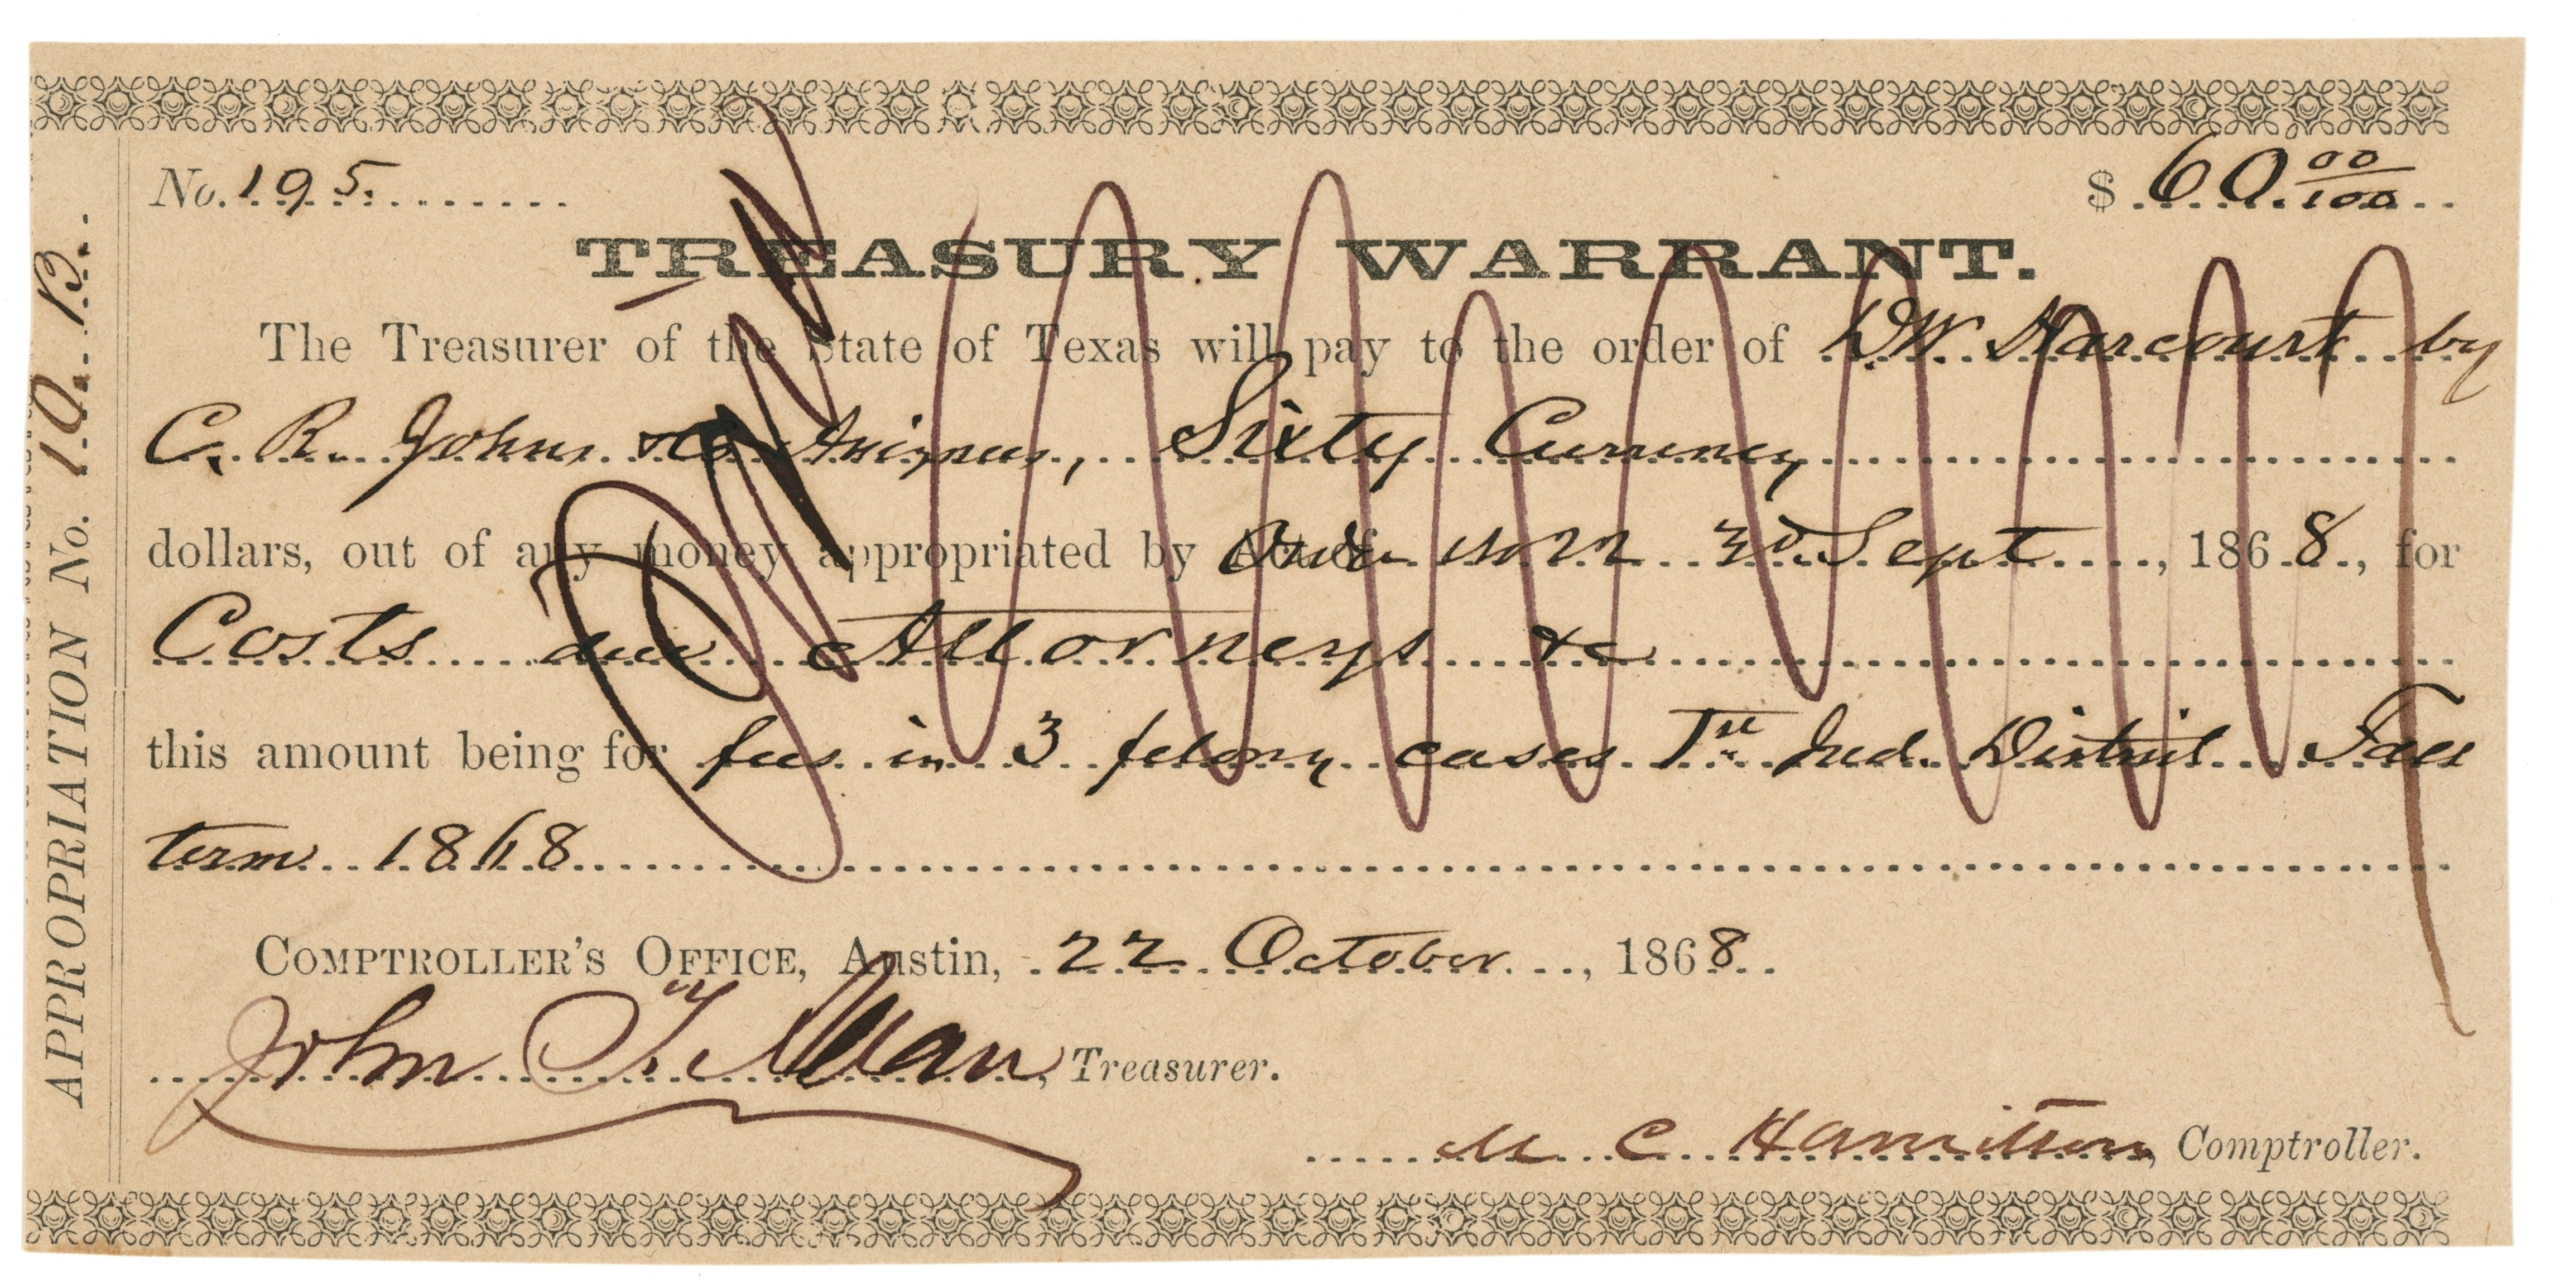 No. 195.
$ 60 00/100
TREASURY WARRANT.
The Treasurer of the State of Texas will pay to the order of D W Harcourt by
C. R. Johns & Co Assignees, Sixty Currency
dollars, out of any money appropriated by Order No 22 30 Sept, 1868, for
Costs due Attorneys &c
this amount being for fees in 3 felony cases 1st Jud. District Fall
term 1868
COMPTROLLER'S OFFICE, Austin, 22 October, 1868.
John T. Allan, Treasurer.
M C Hamilton, Comptroller.
APPROPRIATION No. 10. B.